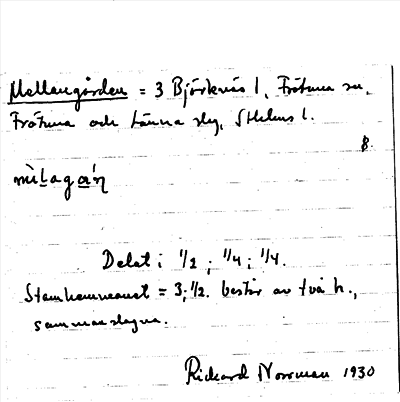 Mellangården = 3 Björknäs 1, Frötuna sn,
Frötuna och Länna slg, Sthlms l.
8.
Delat i 1/2; 1/4; 1/4.
Stamhemmanet = 3; 1/2. består av två h.,
sammanslagna.
Rickard Norrman 1930